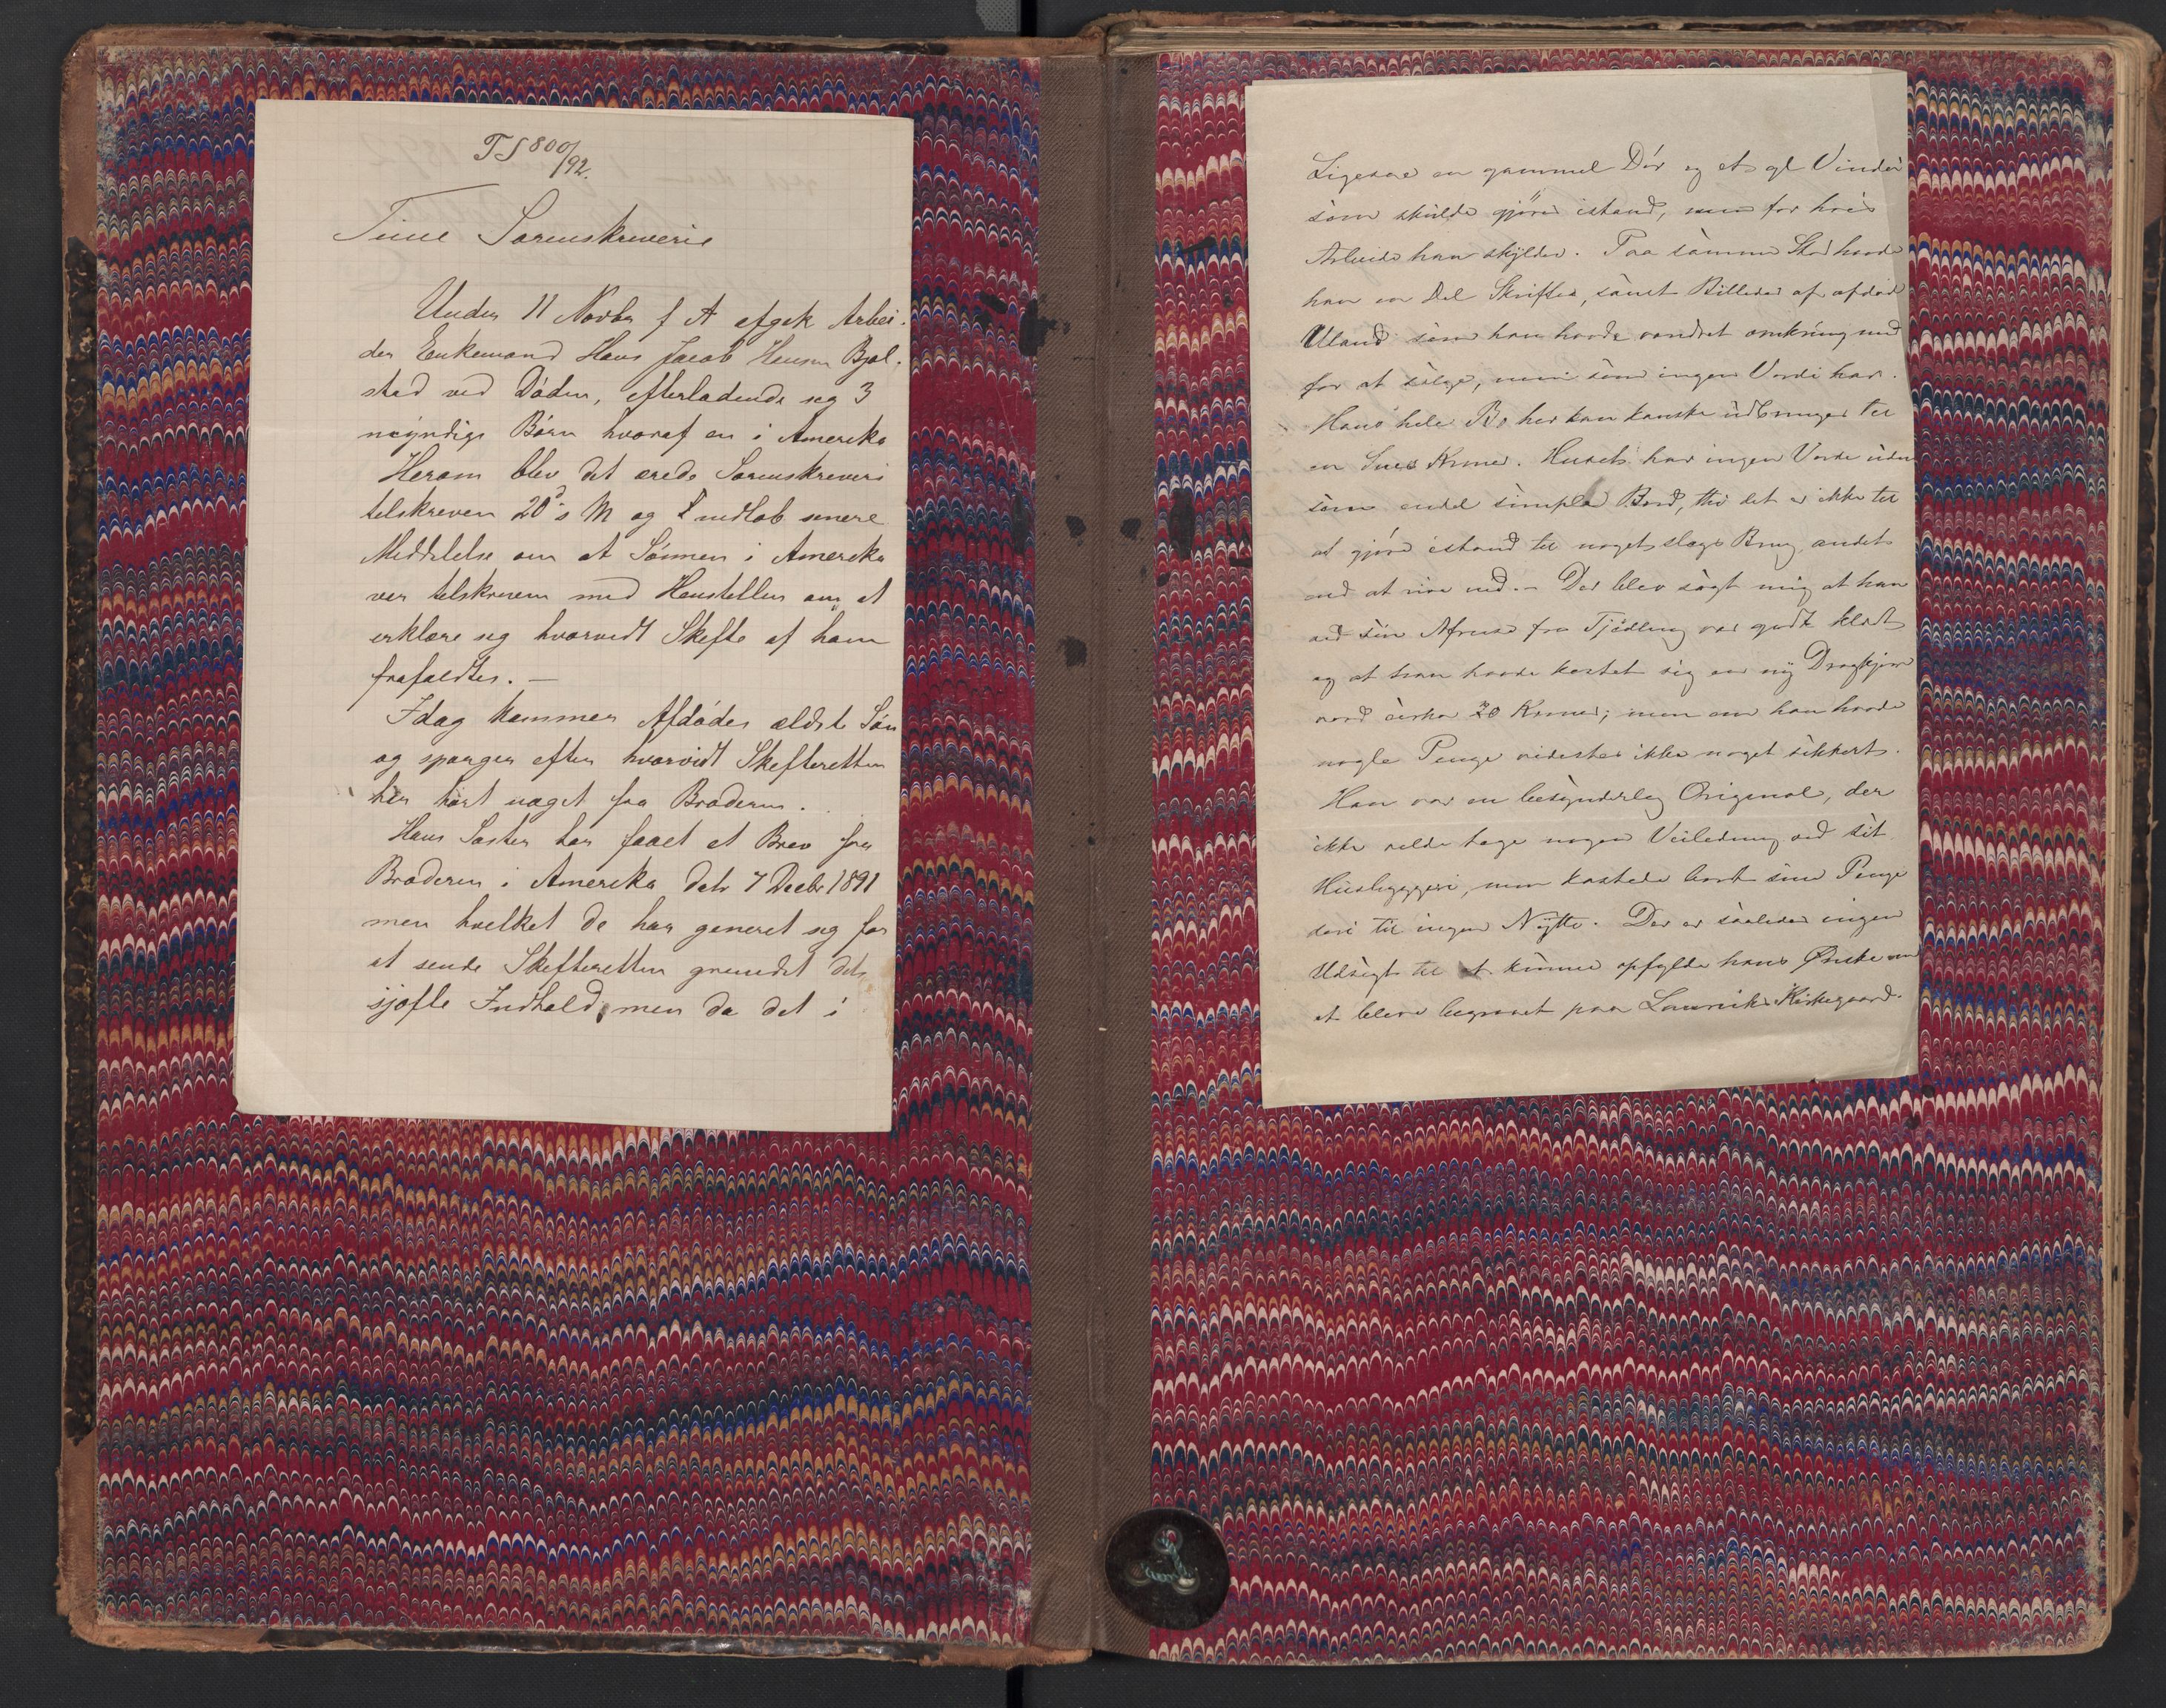 TS 800/92.
Tune Sorenskriverie
Under 11 Novbr f A afgik Arbei-
der Enkemand Hans Jacob Hensen Bjol-
stad ved Døden, efterladende sig 3
myndige Børn hvoraf en i Amerika
Herom blev det ærede Sorenskriveri
tilskreven 20 s M og indløb senere
Meddelelse om at Sønnen i Amerika
var tilskreven med Henstillen om at
erklære sig hvorvidt Skifte af ham
frafaldtes. —
Idag kommer Afdødes ældste Søn
og spørger efter hvorvidt Skifteretten
har hørt noget fra Broderen.
Hans Søster har faaet et Brev fra
Broderen i Amerika datr 7 Decbr 1891
men hvilket de har generet sig for
at sende Skifteretten grundet dets
sjofle Indhold, men da det i
Ligesaa en gammel Dør og et gl Vindu
som skulde gjøres istand, men for hvis
Arbeide han skylder. Paa samme Sted havde
han en Del Skrifter, samt Billeder af afdød
Uland som han havde vandret omkring med
for at sælge, men som ingen Værdi har.
Hans hele Bo her kan kanske udbringes til
en Snes Kroner. Huset har ingen Værdi uden
som endel simple Bord, thi det er ikke til
at gjøre istand til noget slags Brug andet
end at rive ned. - Der blev sagt mig at han
ved sin Afreise fra Tjødling var godt klædt
og at han havde kostet sig en ny Dragkjærre
værd cirka 20 Kroner; men om han havde
nogle Penge vidstes ikke noget sikkert.
Han var en besynderlig Original, der
ikke vilde tage nogen Veiledning ved sit
Husbyggeri, men kastede bort sine Penge
deri til ingen Nytte. Der er saaledes ingen
Udsigt til at kunne opfylde hans Ønske om
at blive begravet paa Laurviks Kirkegaard.